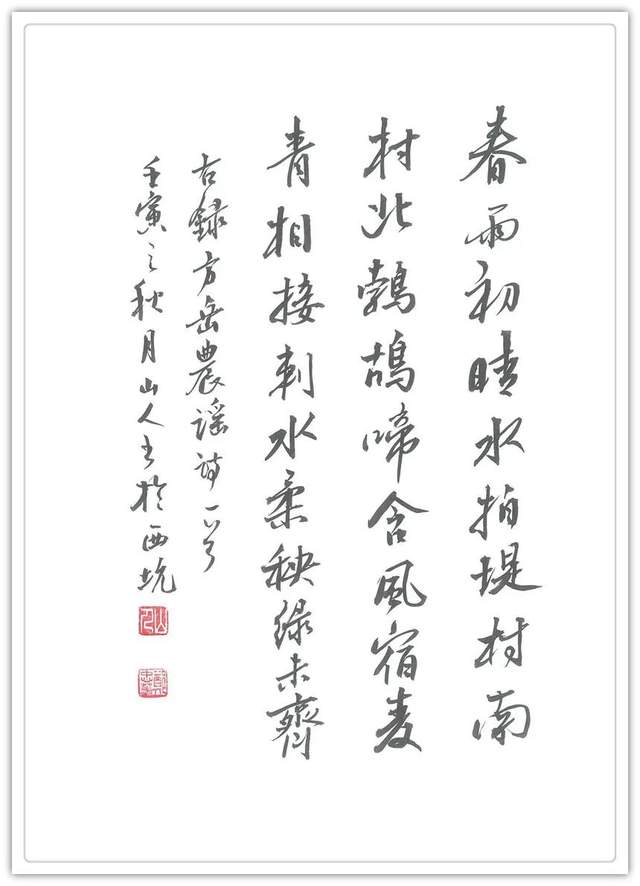 春雨初晴水拍堤村南
村北鵓鴣啼含風宿麦
青相接刺水柔秧绿未齊
右録方岳農謡詩一首
壬寅之秋月山人书於西坑